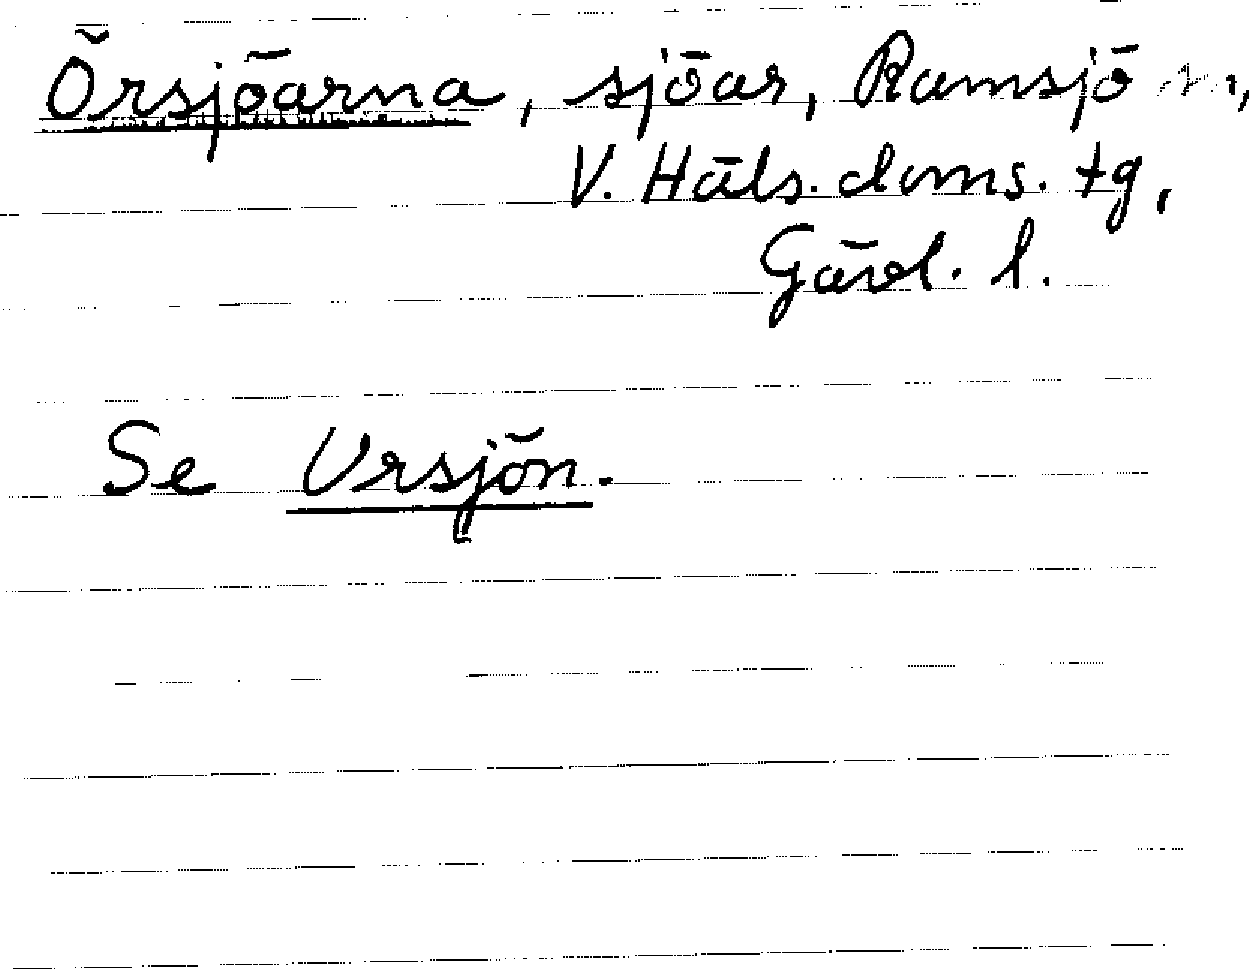 Örsjöarna, sjöar, Ramsjö
V. Häls. doms. tg,
Gävl. l.
Se Ursjön.